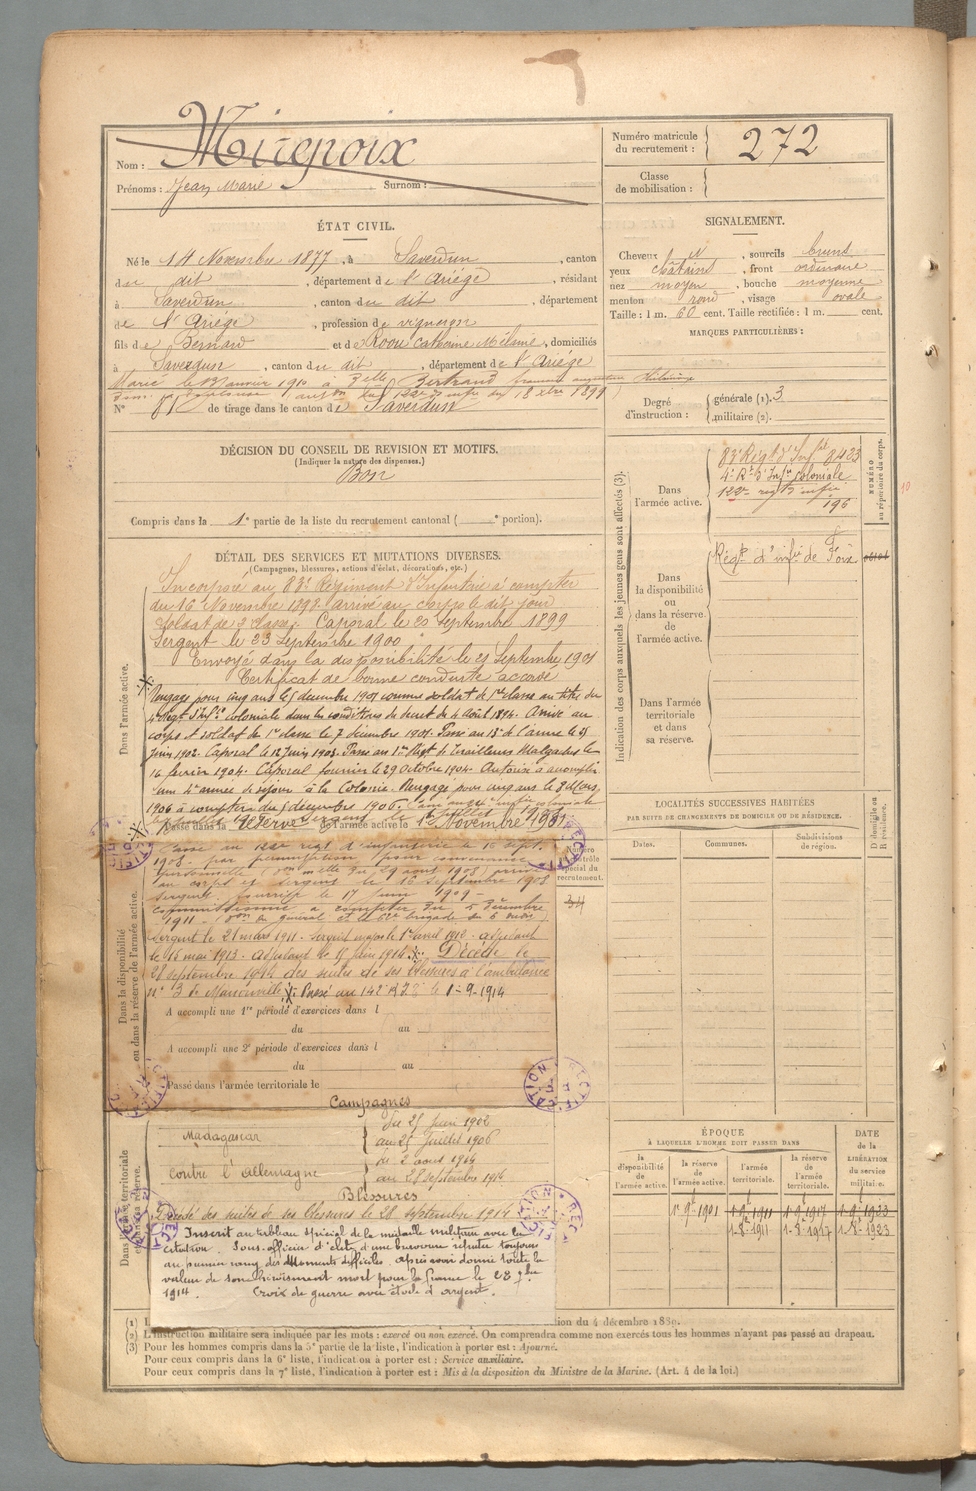 Nom : Mirepoix
Prénoms : Jean Marie Surnom :
Numéro matricule du recrutement : 272
Classe de mobilisation :
ÉTAT CIVIL.
Né le 14 Novembre 1877, à Saverdun, canton
du dit, département de l'Ariège, résidant
à Saverdun, canton du dit, département
de l'Ariège, profession de vigneron
fils de Bernard et de Roou Catherine Mélanie, domiciliés
à Saverdun, canton du dit, département de l'Ariège
Marié le 13 janvier 1910 à Delle Bertrand
N° 81 de tirage dans le canton de Saverdun
SIGNALEMENT.
Cheveux N, sourcils bruns
yeux châtains, front ordinaire
nez moyen, bouche moyenne
menton rond, visage ovale
Taille : 1 m. 60 cent. Taille rectifiée : 1 m. cent.
MARQUES PARTICULIÈRES :
Degré d'instruction : générale (1). 3
militaire (2).
DÉCISION DU CONSEIL DE REVISION ET MOTIFS.
(Indiquer la nature des dispenses.)
Bon
Compris dans la 1e partie de la liste du recrutement cantonal ( e portion).
DÉTAIL DES SERVICES ET MUTATIONS DIVERSES.
(Campagnes, blessures, actions d'éclat, décorations, etc.)
Dans l'armée active.
Incorporé au 83e Régiment d'Infanterie à compter
du 16 Novembre 1898 arrivé au corps le dit jour
soldat de 2e classe. Caporal le 20 septembre 1899
Sergent le 23 Septembre 1900
Envoyé dans la disponibilité le 21 Septembre 1901
Certificat de bonne conduite accordé
Rengagé pour cinq ans le 5 décembre 1901 comme soldat de 1re classe au titre du
4e Régt d'Infie coloniale dans les conditions du décret du 4 Août 1894. Arrivé au
corps et soldat de 1re classe le 7 décembre 1901. Passé au 13e de l'arme le 25
Juin 1902. Caporal le 12 Juin 1903. Passé au 1er Régt de Tirailleurs Malgaches le
16 février 1904. Caporal fourrier le 29 Octobre 1904. Autorisé à accomplir
une 4e année de séjour à la Colonie. Rengagé pour cinq ans le 8 Mars
1906 à compter du 5 décembre 1906.
Passé dans la réserve de l'armée active le 1er Novembre 1901
Dans la disponibilité ou dans la réserve de l'armée active.
Passé au 122e régt d'infanterie le 16 sept.
1908 par permutation pour convenance
personnelle ( du 29 août 1908) arrivé
au corps et sergent le 16 septembre 1908
Sergent fourrier le 17 Juin 1909 -
Commissionné à compter du 5 décembre
1911 - (Don du général Ct la 62e brigade du 6 )
Sergent le 21 mars 1911. Sergent major le 1er avril 1912. adjudant
le 15 mai 1913. adjudant le 19 juin 1914 Décédé le
28 septembre 1914 des suites de ses blessures à l'ambulance
n° 3 de Manonville. Passé au 142e RI le 1-9-1914
A accompli une 1re période d'exercices dans l
du au
A accompli une 2e période d'exercices dans l
du au
Passé dans l'armée territoriale le
Dans l'armée territoriale et dans sa réserve.
Campagnes
Madagascar du 25 Juin 1902
au 25 Juillet 1906
contre l'Allemagne du 2 août 1914
au 28 septembre 1914
Blessures
Décédé des suites de ses blessures le 28 septembre 1914
Inscrit au tableau spécial de la médaille militaire avec la
citation. Sous-officier d'élite, d'une bravoure réputée toujours
au premier rang des moments difficiles. Après avoir donné toute la
valeur de son héroïsme est mort pour la France le 28 7bre
1914. Croix de guerre avec étoile d'argent.
RECTIFICATION
Indication des corps auxquels les jeunes gens sont affectés (3).
NUMÉRO au répertoire du corps.
Dans l'armée active.
83e Régt d'Infie 8423
4e Rt d'Infie coloniale
122e régt d'infie
196
10
Dans la disponibilité ou dans la réserve de l'armée active.
Régt d'infie de Foix
Dans l'armée territoriale et dans sa réserve.
LOCALITÉS SUCCESSIVES HABITÉES
PAR SUITE DE CHANGEMENTS DE DOMICILE OU DE RÉSIDENCE.
Dates. Communes. Subdivisions de région. D domicile ou R résidence.
ÉPOQUE
À LAQUELLE L'HOMME DOIT PASSER DANS
la disponibilité de l'armée active. la réserve de l'armée active. l'armée territoriale. la réserve de l'armée territoriale.
DATE DE LA LIBÉRATION du service militaire.
1-9-1901 1-9-1911 1-9-1917 1-9-1923
1-8-1911 1-8-1917 1-8-1923
(1) du 4 décembre 1889.
(2) L'instruction militaire sera indiquée par les mots : exercé ou non exercé. On comprendra comme non exercés tous les hommes n'ayant pas passé au drapeau.
(3) Pour les hommes compris dans la 5e partie de la liste, l'indication à porter est : Ajourné.
Pour ceux compris dans la 6e liste, l'indication à porter est : Service auxiliaire.
Pour ceux compris dans la 7e liste, l'indication à porter est : Mis à la disposition du Ministre de la Marine. (Art. 4 de la loi.)